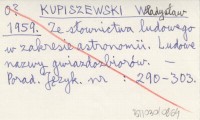 03 KUPISZEWSKI Władysław
1959. Ze słownictwa ludowego
w zakresie astronomii. Ludowe
nazwy gwiazdozbiorów. —
Porad. Język. nr : 290-303.